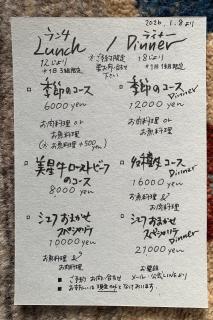 2026.1.8より
ランチ
Lunch / ディナー
Dinner
12じより
*1日3組限定
*ご予約限定
18じより
*1日1組限定
季節のコース
6000 yen
お肉料理 or
お魚料理
(*お魚料理+500yen)
美星牛ローストビーフ
のコース
8000 yen
シェフおまかせ
スペシャリテ
10000 yen
お魚料理 &
お肉料理
季節のコース
Dinner
12000 yen
お肉料理 or
お魚料理
コース
Dinner
16000 yen
お魚料理 &
お肉料理
シェフおまかせ
スペシャリテ
Dinner
21000 yen
お電話
メール・公式LINEより
ご予約 お問い合せ
お支払いは現金のみとなっております